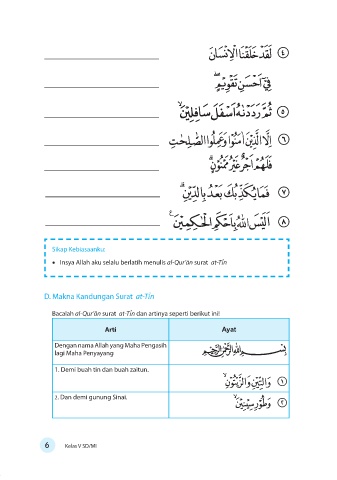 ٤ لَقَدْ خَلَقْنَا الْاِنْسَانَ
فِيْٓ اَحْسَنِ تَقْوِيْمٍۖ
٥ ثُمَّ رَدَدْنٰهُ اَسْفَلَ سَافِلِيْنَۙ
٦ اِلَّا الَّذِيْنَ اٰمَنُوْا وَعَمِلُوا الصّٰلِحٰتِ
فَلَهُمْ اَجْرٌ غَيْرُ مَمْنُوْنٍۗ
٧ فَمَا يُكَذِّبُكَ بَعْدُ بِالدِّيْنِۗ
٨ اَلَيْسَ اللّٰهُ بِاَحْكَمِ الْحٰكِمِيْنَ ࣖ
Sikap Kebiasaanku:
• Insya Allah aku selalu berlatih menulis al-Qur'ān surat at-Tīn
D. Makna Kandungan Surat at-Tīn
Bacalah al-Qur'ān surat at-Tīn dan artinya seperti berikut ini!
Arti Ayat
Dengan nama Allah yang Maha Pengasih
lagi Maha Penyayang
بِسْمِ اللّٰهِ الرَّحْمٰنِ الرَّحِيْمِ
1. Demi buah tin dan buah zaitun.
١ وَالتِّيْنِ وَالزَّيْتُوْنِۙ
2. Dan demi gunung Sinai.
٢ وَطُوْرِ سِيْنِيْنَۙ
6 Kelas V SD/MI